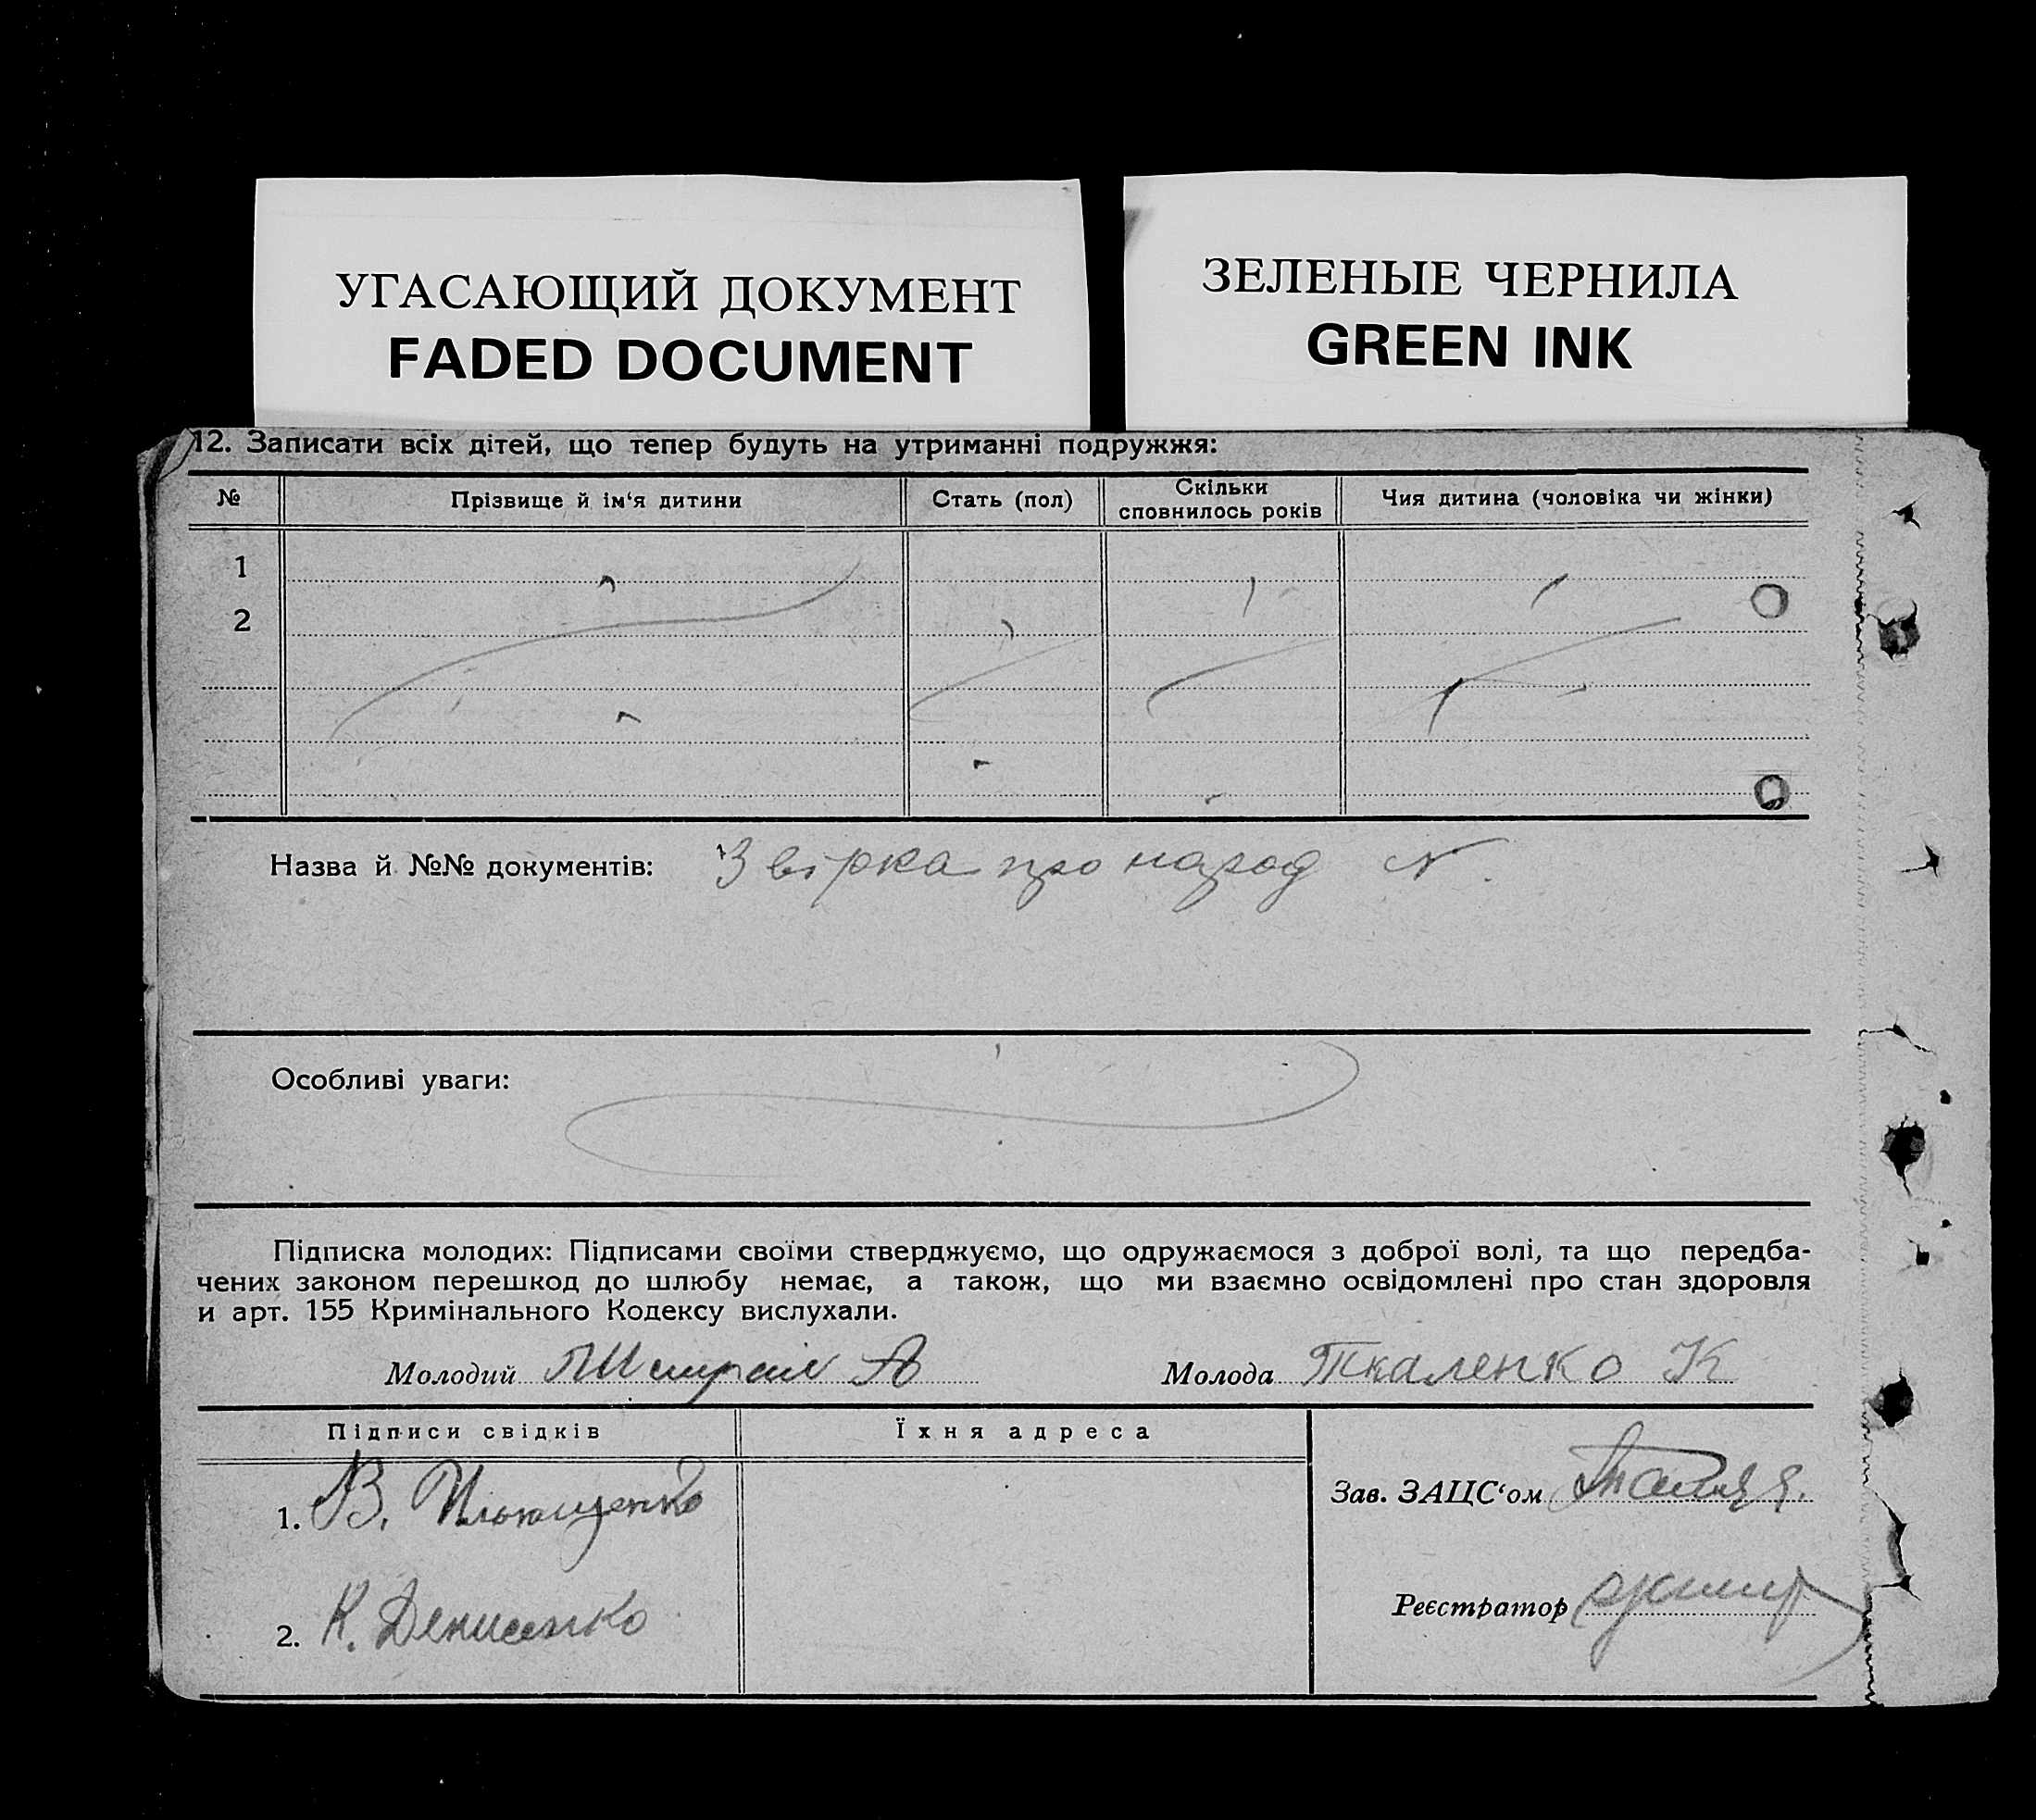 УГАСАЮЩИЙ ДОКУМЕНТ
FADED DOCUMENT
ЗЕЛЕНЫЕ ЧЕРНИЛА
GREEN INK
12. Записати всіх дітей, що тепер будуть на утриманні подружжя:
№ Прізвище й ім‘я дитини Стать (пол) Скільки сповнилось років Чия дитина (чоловіка чи жінки)
1
2
Назва й №№ документів: Звірка про народ N.
Особливі уваги:
Підписка молодих: Підписами своїми стверджуємо, що одружаємося з доброї волі, та що передба-
чених законом перешкод до шлюбу немає, а також, що ми взаємно освідомлені про стан здоровля
и арт. 155 Кримінального Кодексу вислухали.
Молодий А Молода Ткаленко К
Підписи свідків Їхня адреса
1. В. Ільющенко
Зав. ЗАЦС‘ом
Реєстратор
2. К. Денисенко